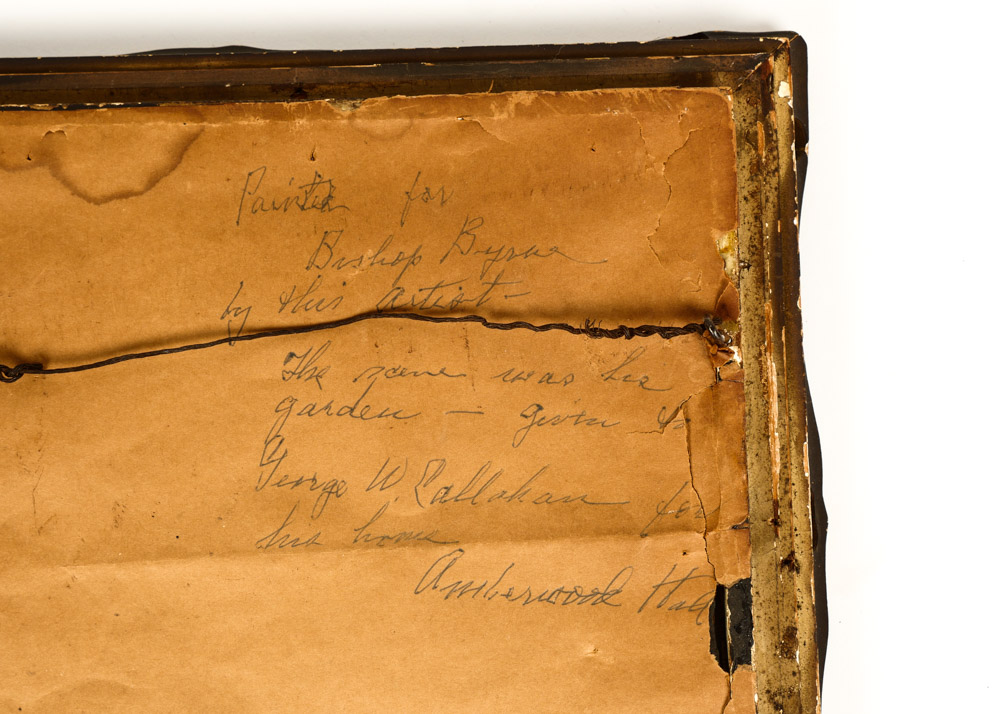 Painted for
Bishop Byrne
by this artist –
The scene was his
garden – given to
George W. Callahan for
his home
Amberwood Hall